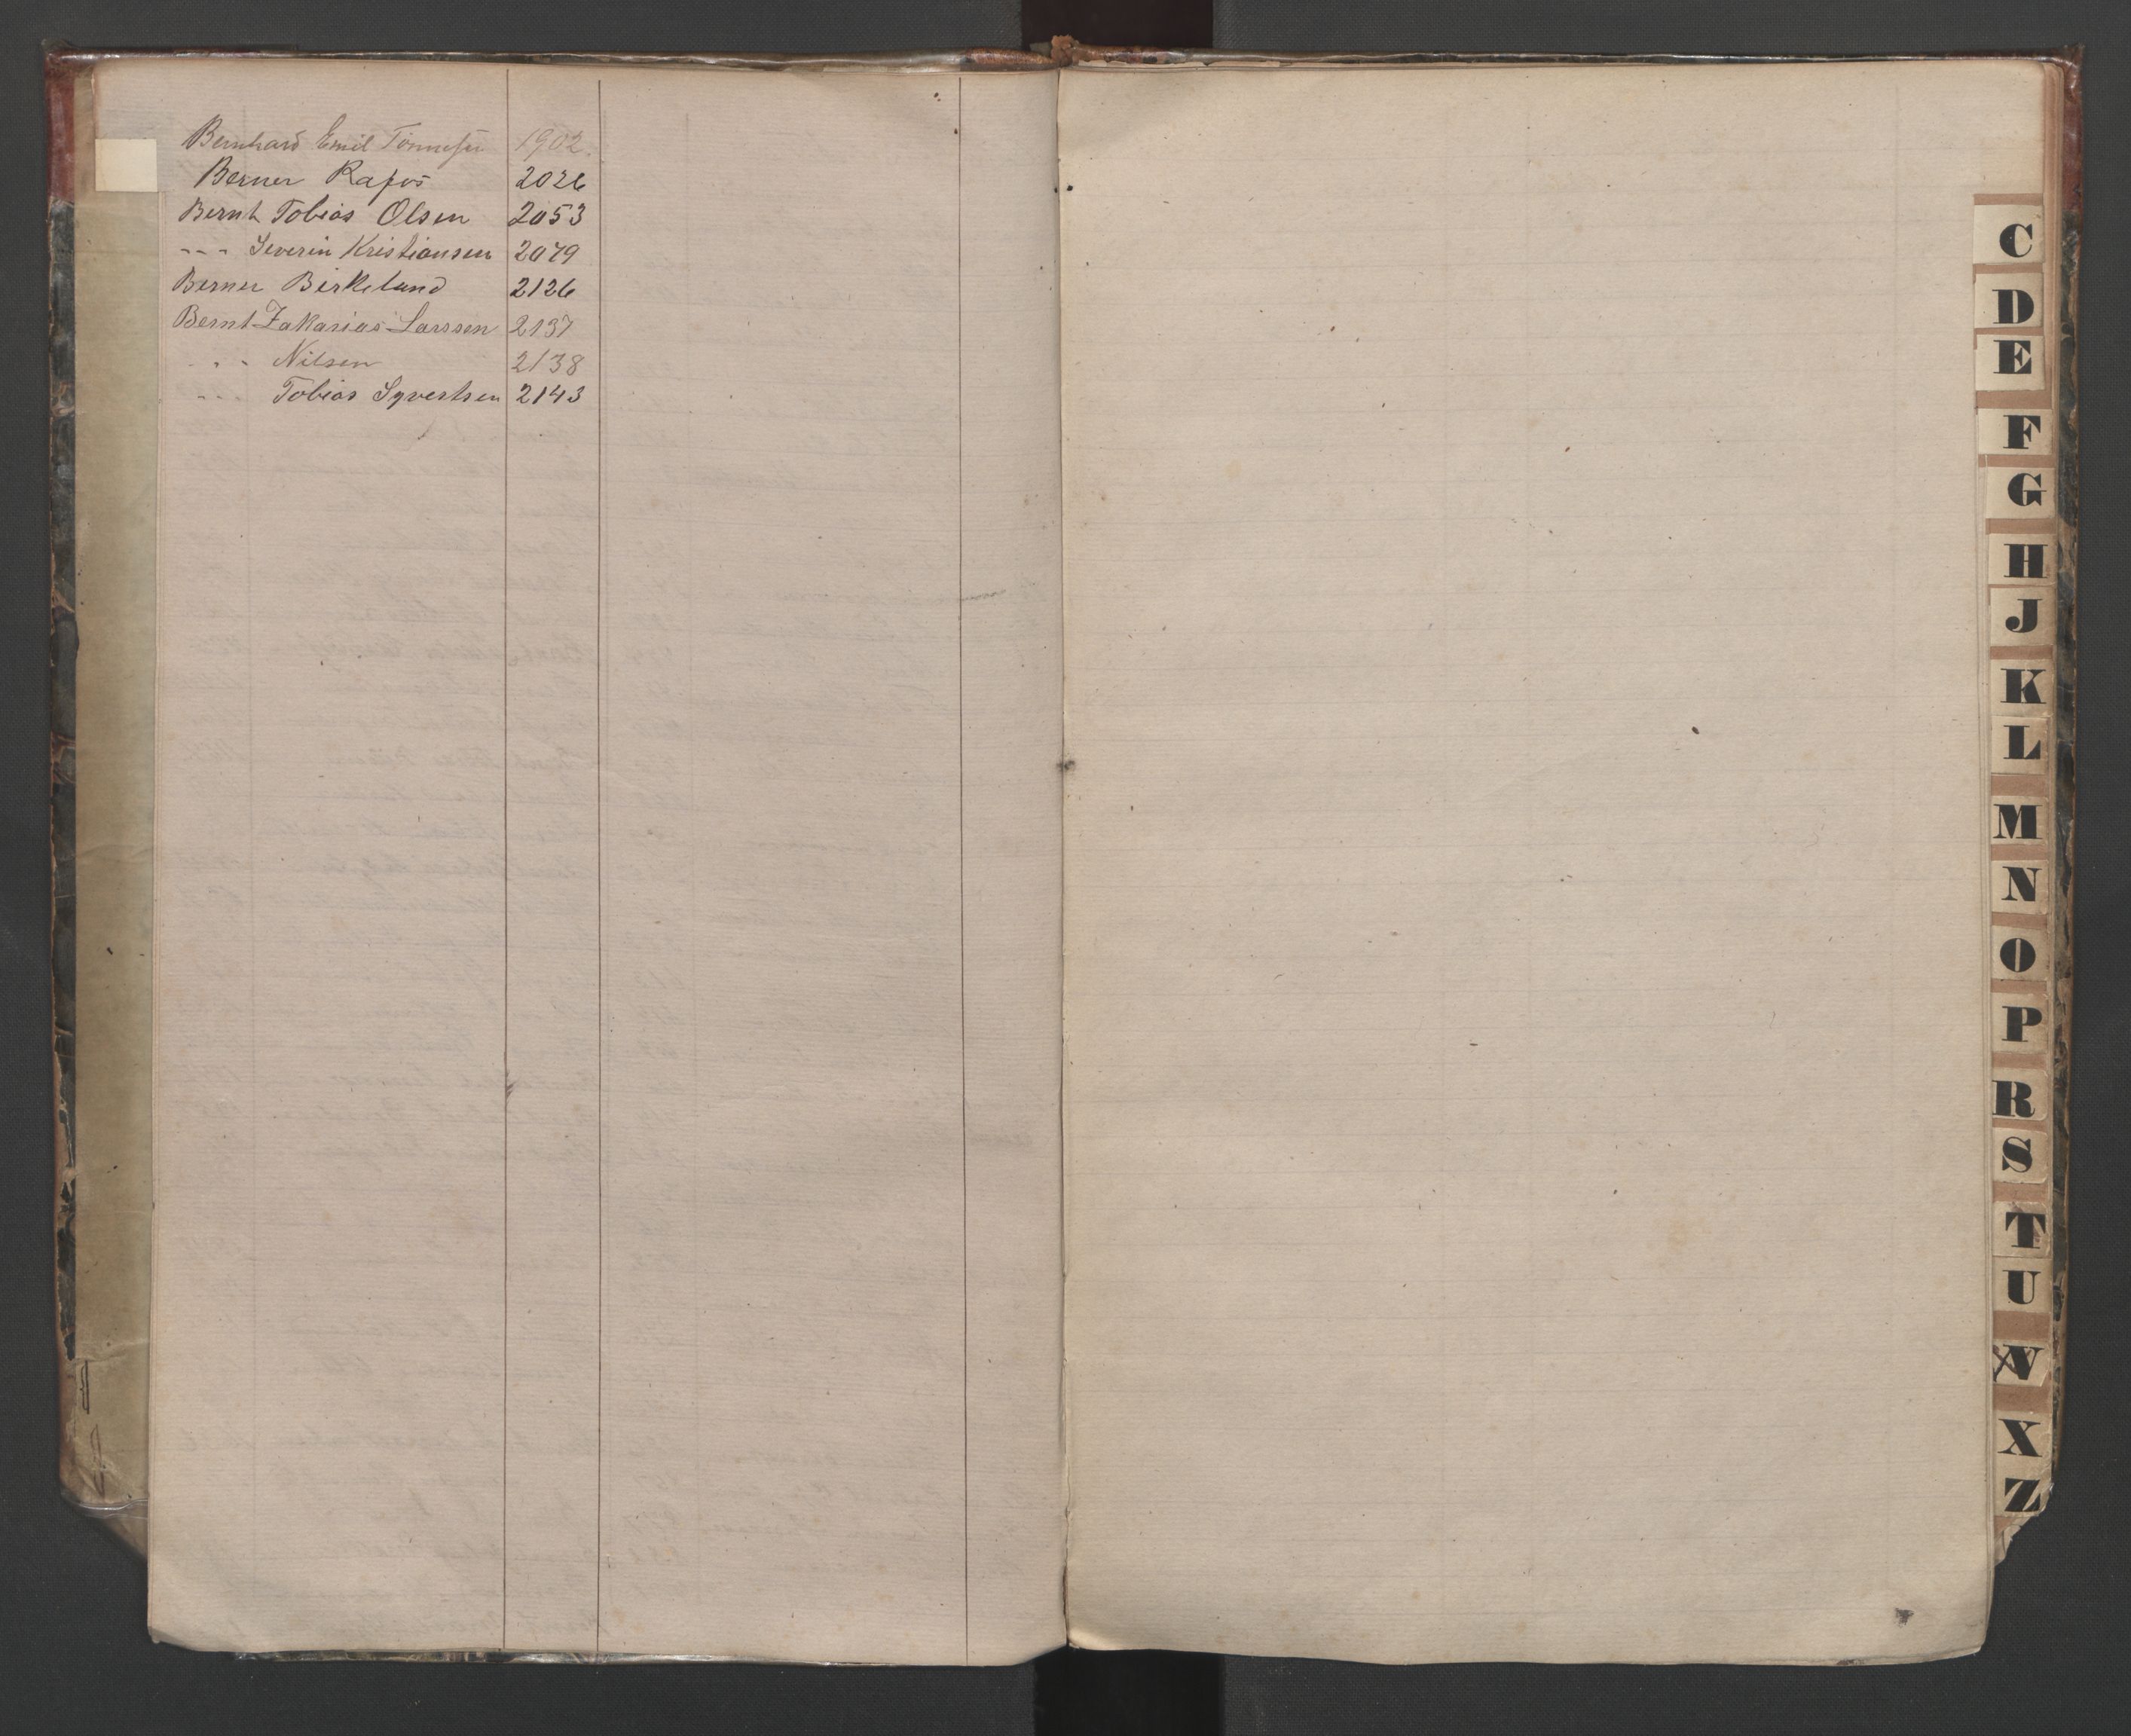 Bernhard Emil Tønnesen 1902.
Berner Rafos 2026
Bernt Tobias Olsen 2053
--- Severin Kristiansen 2079
Berner Birkeland 2126
Bernt Zakarias Larssen 2137
- - Nilsen 2138
--- Tobias Syvertsen 2143
C
D
E
F
G
H
J
K
L
M
N
O
P
R
S
T
U
V
X
Z